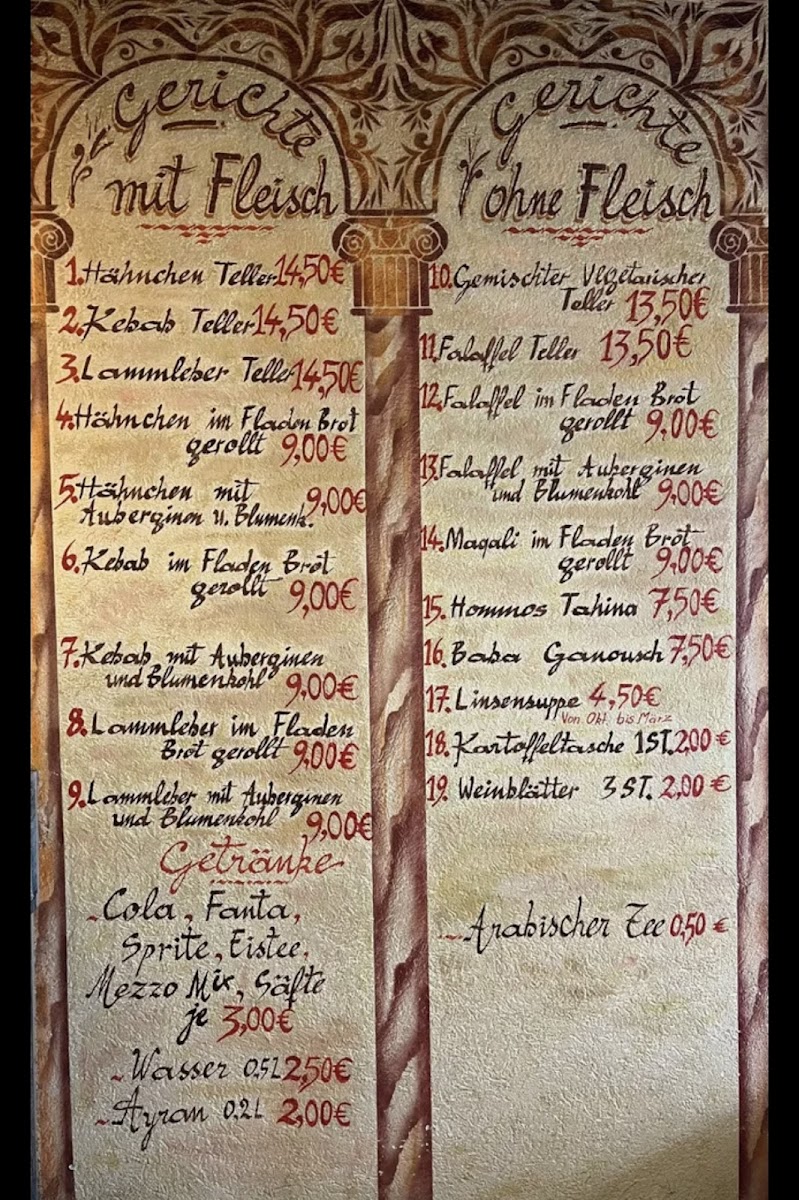 Gerichte
mit Fleisch
1. Hähnchen Teller 14,50€
2. Kebab Teller 14,50€
3. Lammleber Teller 14,50€
4. Hähnchen im Fladen Brot
gerollt 9,00€
5. Hähnchen mit
Auberginen u. Blumenk. 9,00€
6. Kebab im Fladen Brot
gerollt 9,00€
7. Kebab mit Auberginen
und Blumenkohl 9,00€
8. Lammleber im Fladen
Brot gerollt 9,00€
9. Lammleber mit Auberginen
und Blumenkohl 9,00€
Getränke
~Cola, Fanta,
Sprite, Eistee,
Mezzo Mix, Säfte
je 3,00€
~Wasser 0.5L 2,50€
~Ayran 0.2L 2,00€
Gerichte
ohne Fleisch
10. Gemischter Vegetarischer
Teller 13,50€
11. Falaffel Teller 13,50€
12. Falaffel im Fladen Brot
gerollt 9,00€
13. Falaffel mit Auberginen
und Blumenkohl 9,00€
14. Maqali im Fladen Brot
gerollt 9,00€
15. Hommos Tahina 7,50€
16. Baba Ganousch 7,50€
17. Linsensuppe 4,50€
Von Okt. bis März
18. Kartoffeltasche 1ST. 2,00€
19. Weinblätter 3 ST. 2,00€
~Arabischer Tee 0,50 €